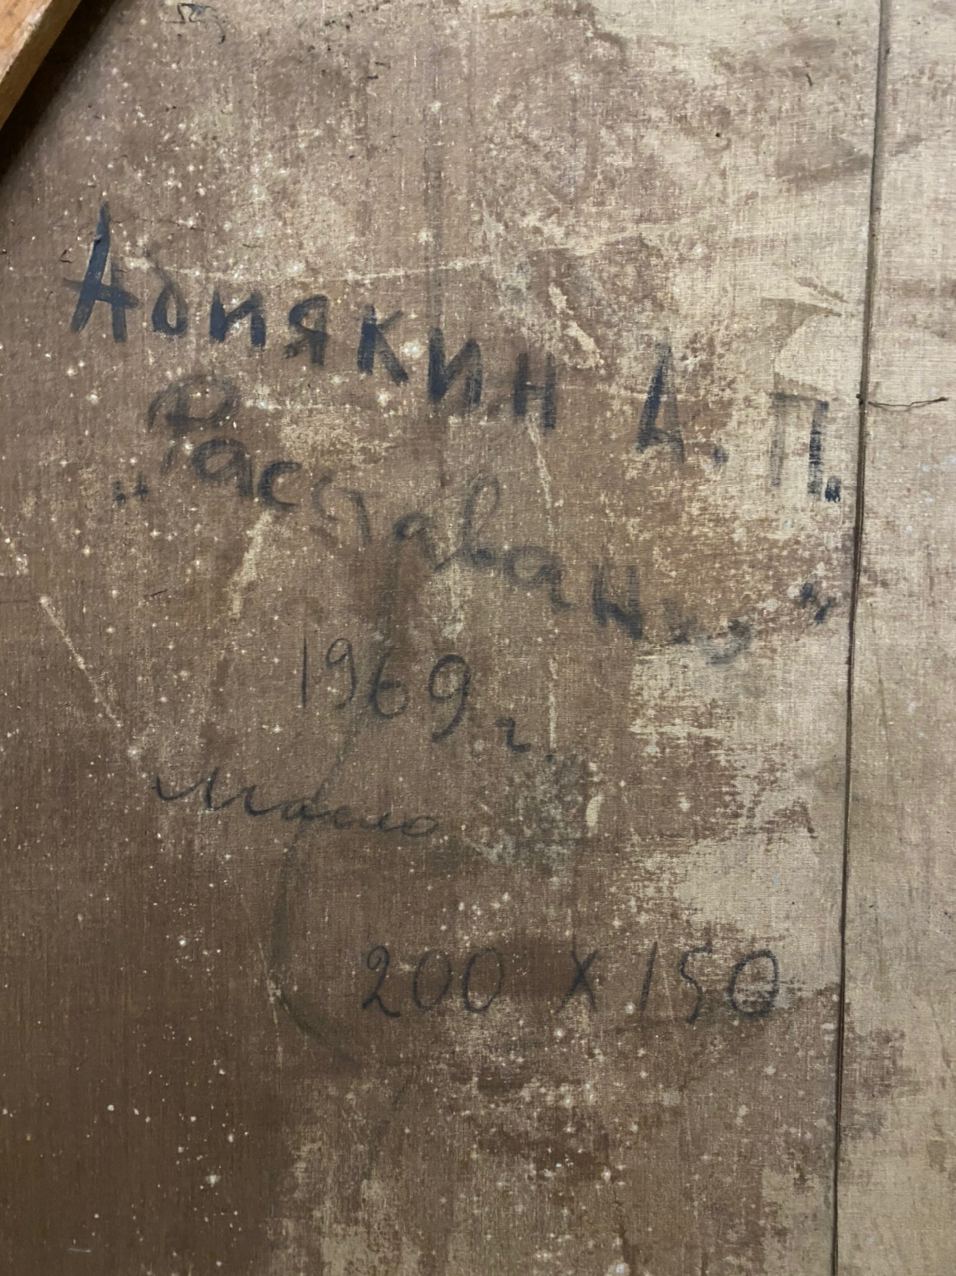 Абиякин А. П.
„Расставание"
1969 г.
Масло
200 X 150